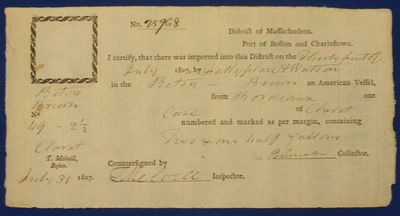 No. 25968
District of Massachusetts.
Port of Boston and Charlestown.
I certify, that there was imported into this District on the Thirty first of
July 1807, by & Watson
in the Betsy - Brown an American Vessel,
from Bordeaux one
Case of Claret
numbered and marked as per margin, containing
Two & one half gallons
Collector.
Countersigned by T Melvill Inspector.
Betsy
Brown
No
49 - 2½
Claret
T. Melvill,
Boston.
July 31 1807.